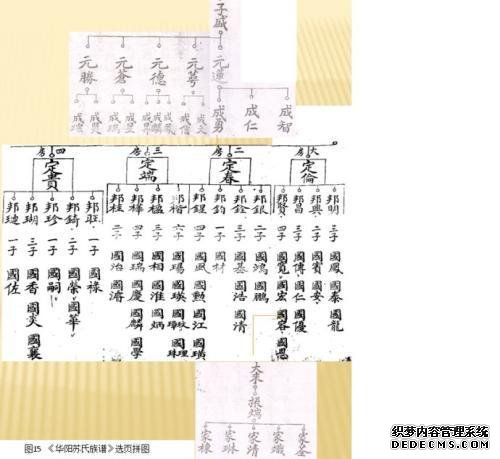 子盛
元蓮 元芳 元德 元蒼 元勝
成智 成仁 成勇
大房 二房 三房 四房
定倫 定春 定端 定書
邦明 三子 國鳳 國泰 國龍
邦興 二子 國賓 國安
邦昌 三子 國傳 國仁 國優
邦賢 四子 國寬 國宏 國容 國恩
邦銀 二子 國鴻 國鵬
邦銓 三子 國基 國浩 國清
邦鈞 一子 國材
邦鋥 四子 國風 國勳 國江 國璜
邦楷 六子 國賜 國瑛
邦楹 三子 國相 國淮 國炳
邦樺 四子 國瑞 國慶 國麟 國學
邦桂 二子 國治 國濤
邦旺 一子 國祿
邦錡 二子 國榮 國華
邦珍 一子 國嗣
邦瑚 三子 國香 國炎 國襄
邦璉 一子 國佐
大來
振端
家金 家熾 家清 家琳 家棟
图15 《华阳苏氏族谱》选页拼图
本文内容管理系统